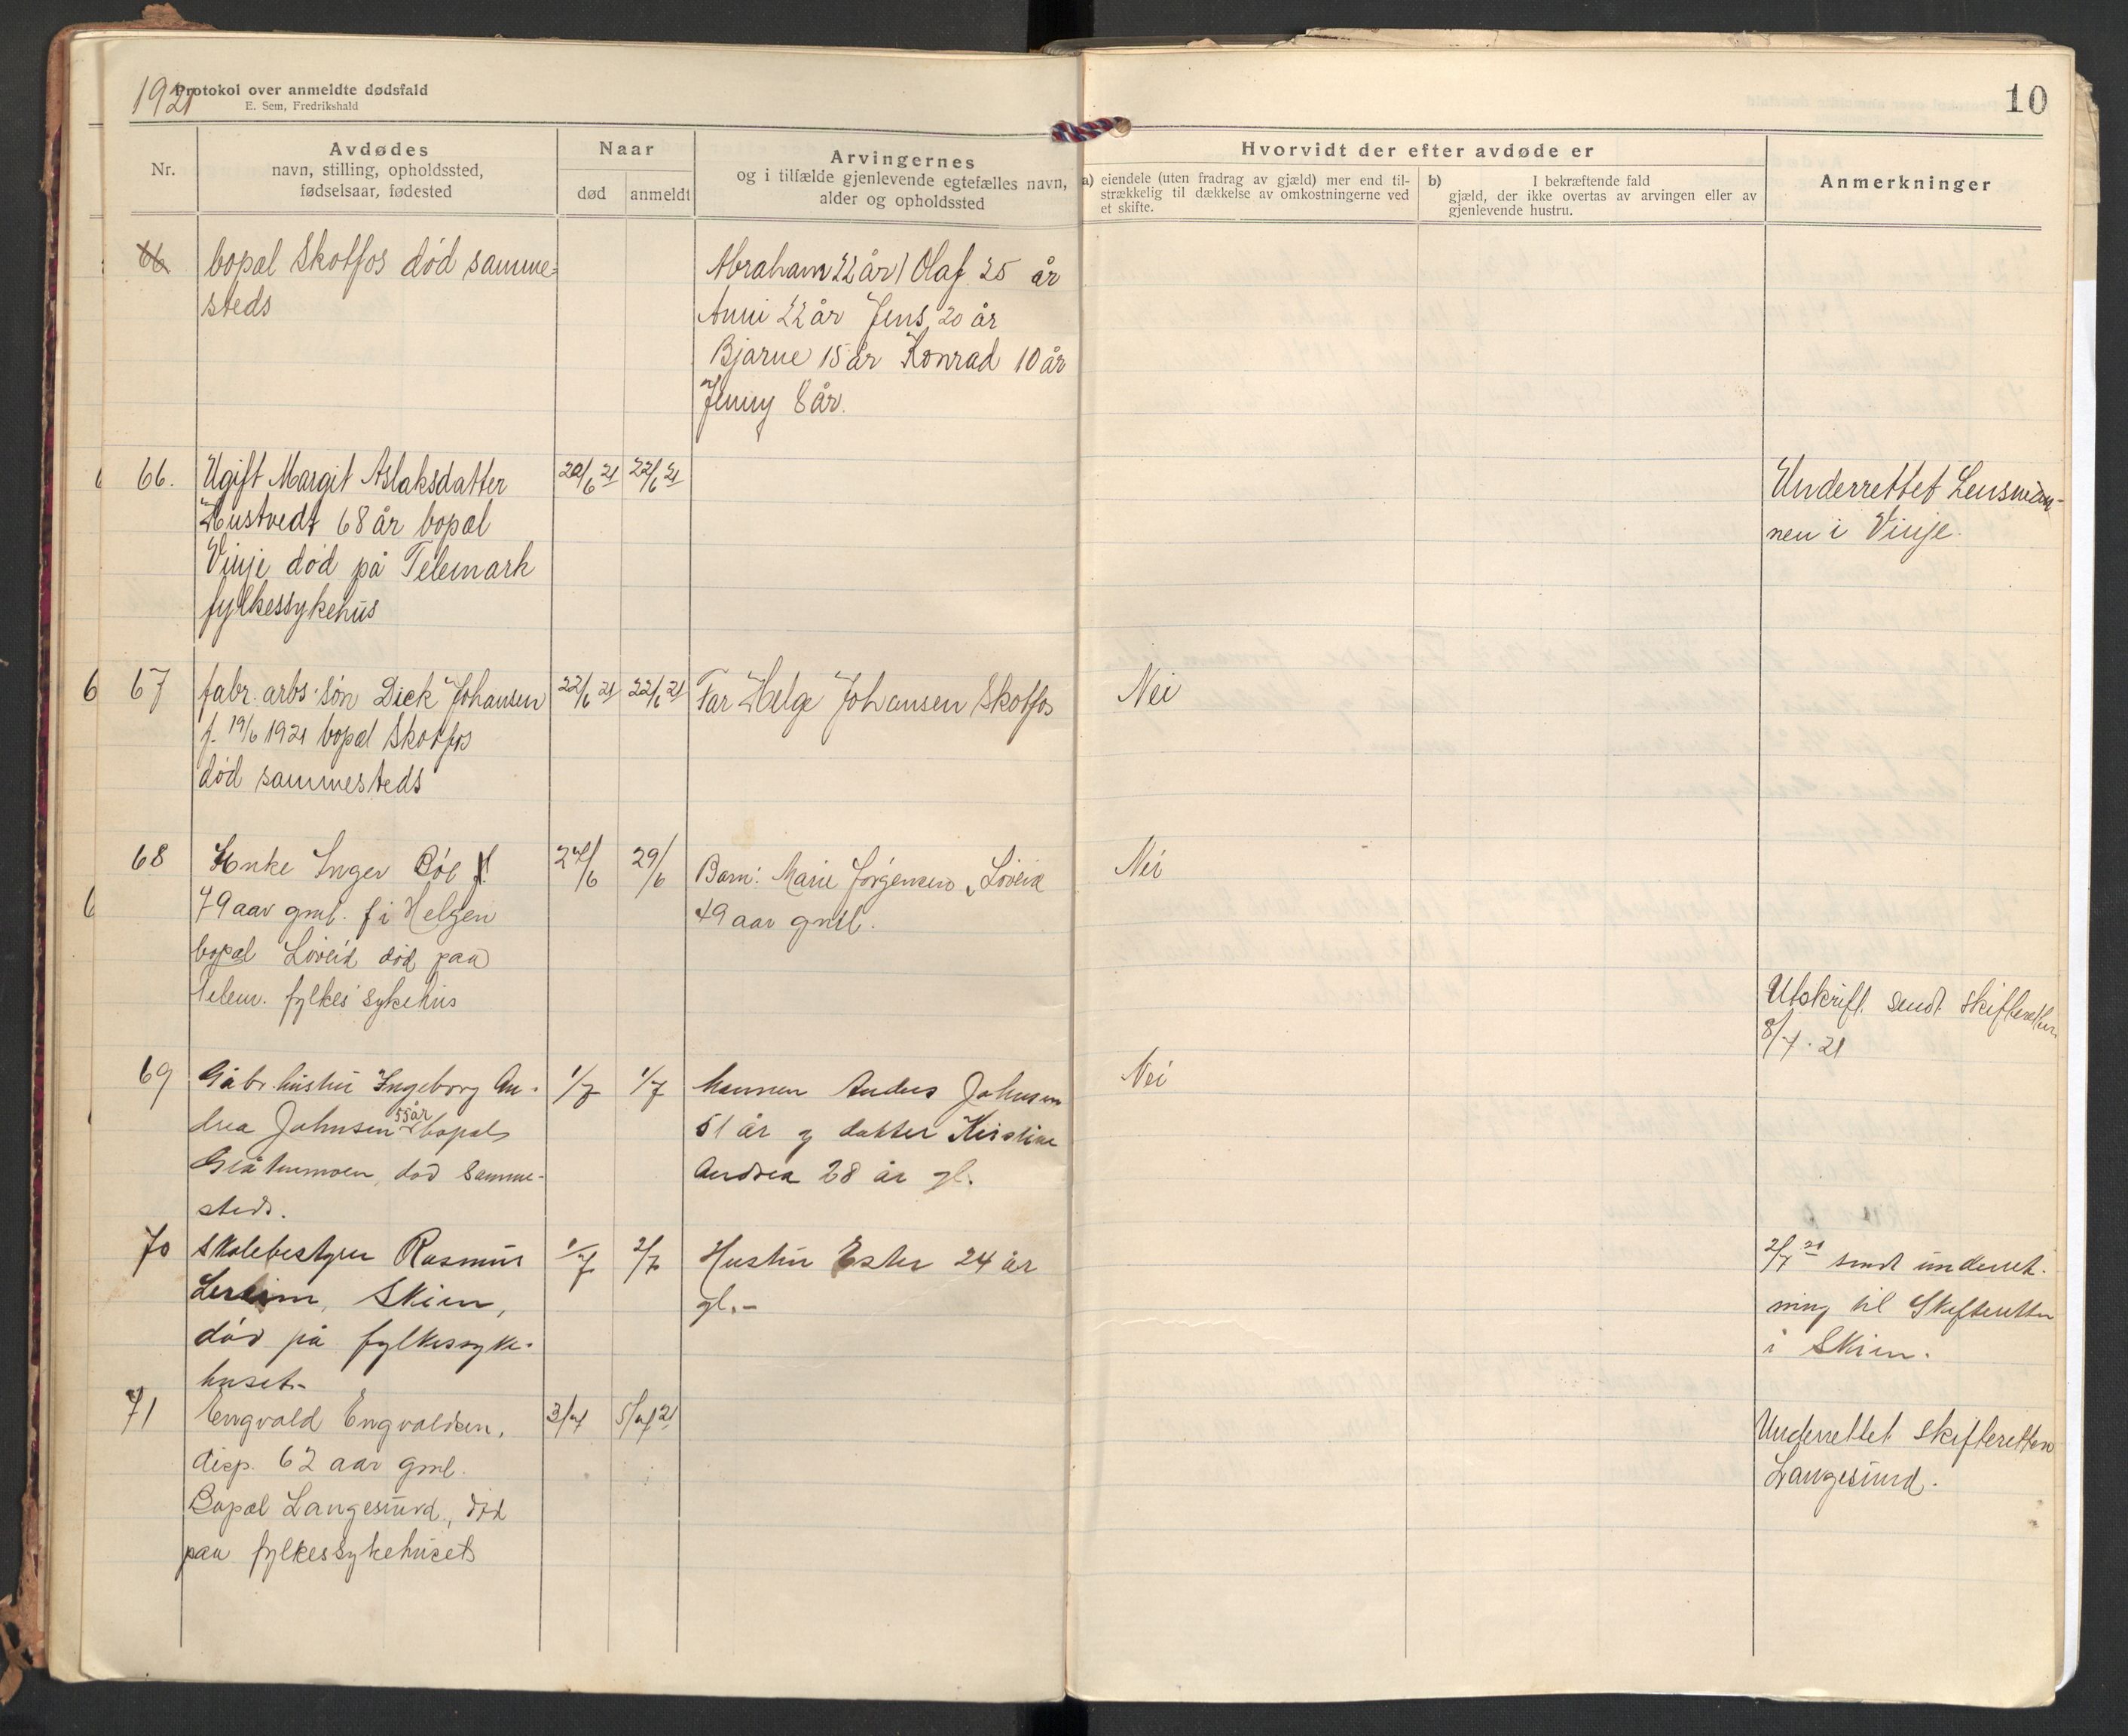 1921
Protokol over anmeldte dødsfald
E. Sem, Fredrikshald
10
Nr.
Avdødes
navn, stilling, opholdssted,
fødselsaar, fødested
Naar
død
anmeldt
Arvingernes
og i tilfælde gjenlevende egtefælles navn,
alder og opholdssted
Hvorvidt der efter avdøde er
a) eiendele (uten fradrag av gjæld) mer end til-
strækkelig til dækkelse av omkostningerne ved
et skifte.
b) I bekræftende fald
gjæld, der ikke overtas av arvingen eller av
gjenlevende hustru.
Anmerkninger
66
bopæl Skotfos død samme-
steds
Abraham 22 år) Olaf 25 år
Anni 22 år Jens 20 år
Bjarne 15 år Konrad 10 år
Jenny 8 år.
66.
Ugift Margit Aslaksdatter
Hustvedt 68 år bopæl
Vinje død på Telemark
fylkessykehus
20/6 21
22/6 21
Underrettet Lensman-
nen i Vinje.
67
fabr. arbs. søn Dick Johansen
f. 19/6 1921 bopæl Skotfos
død sammesteds
22/6 21
22/6 21
Far Helge Johansen Skotfos
Nei
68
Enke Inger Bøe
79 aar gml. f i Helgen
bopæl Løveid død paa
Telem. fylkes sykehus
29/6
Barn: Marie Jørgensen, Løveid
49 aar gml.
Nei
Utskrift sendt skifteretten
8/7. 21
69
Gåbr. hustru Ingeborg An-
drea Johnsen 55 år bopæl
Gråtenmoen, død samme-
steds.
1/7
1/7
Mannen Anders Johnsen
51 år og datter Kristine
Andrea 28 år gl.
Nei
70
Skolebestyrer Rasmus
Lereim, Skien,
død på fylkessyke-
huset.-
1/7
2/7
Hustru Ester 24 år
gl.-
2/7 21 sendt underret-
ning til Skifteretten
i Skien.
71
Engvald Engvaldsen,
disp. 62 aar gml.
Bopæl Langesund, død
paa fylkessykehuset
3/7
5/7 21
Underrettet skifteretten
Langesund.